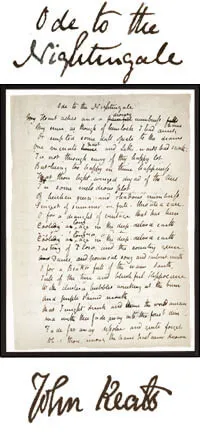 Ode to the
Nightingale
Ode to the Nightingale
aches and a numbness
My sense as though of hemlock I had drunk,
Or emptied some dull opiate to the drains
One minute and Lethe-wards had sunk
'Tis not through envy of thy happy lot
But being too happy in thine happiness
That thou light winged dryad of the trees
In some melodious plot
Of beechen green and shadows numberless
of summer in full
O for a draught of vintage that has been
age in the deep delved earth
Tasting of Flora and the country green
And Dance and provencal song and sunburnt mirth
O for a Beaker full of the warm South
Full of the true and blushful Hippocrene
bubbles winking at the brim
And purple stained mouth
That I might drink and leave the world unseen
And with thee fade away into the forest dim
Fade far away dissolve and quite forget
What thou among the leaves hast never known
John Keats